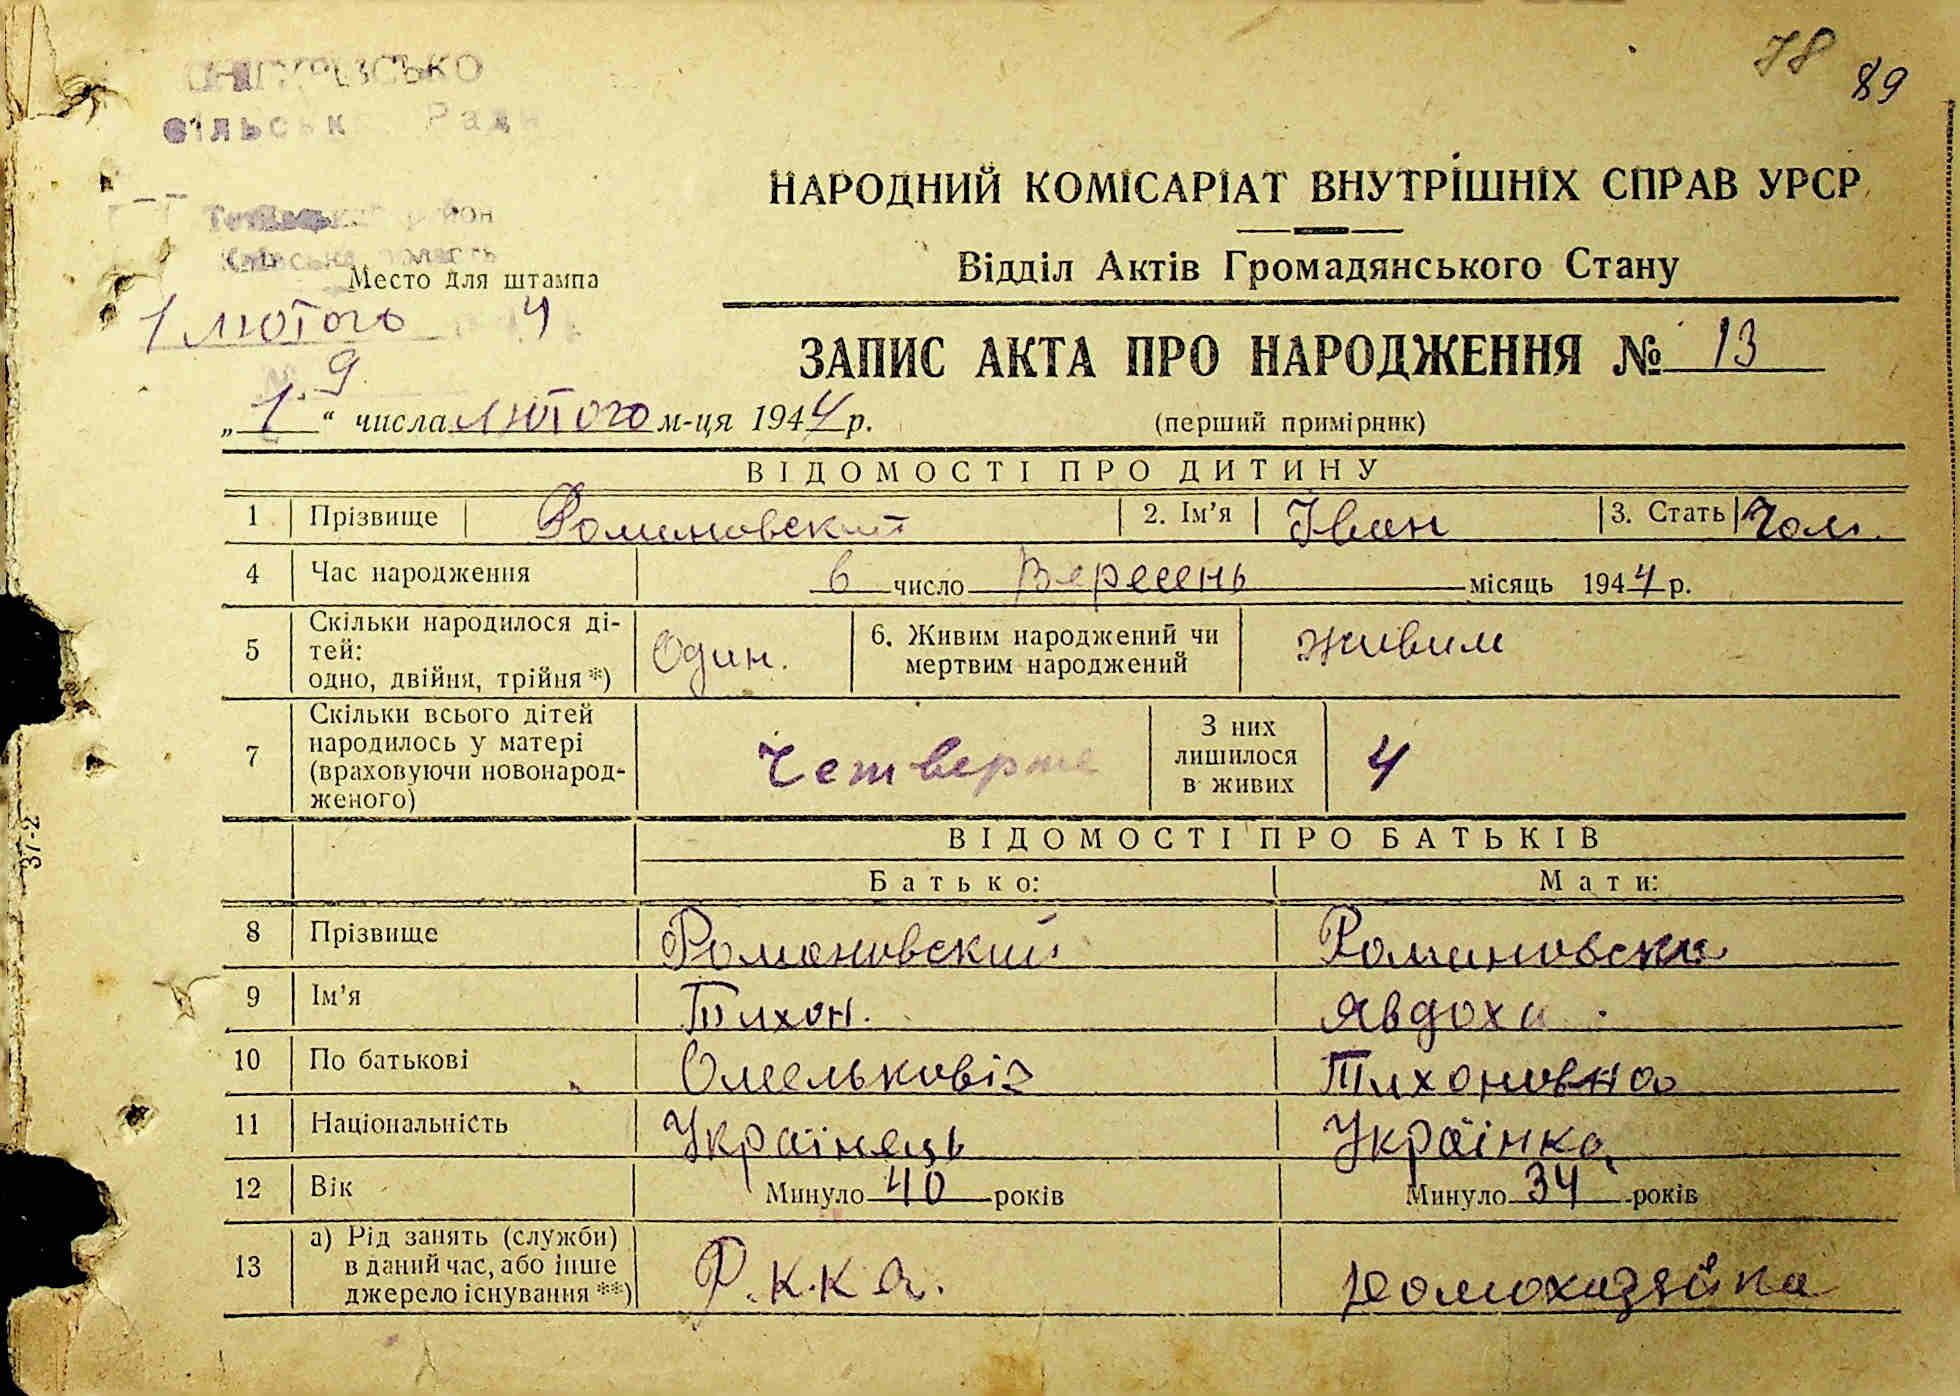 78 89
сільськ Рад
район
Київська область
НАРОДНИЙ КОМІСАРІАТ ВНУТРІШНІХ СПРАВ УРСР
Відділ Актів Громадянського Стану
Место для штампа
1 лютого 4
9
ЗАПИС АКТА ПРО НАРОДЖЕННЯ № 13
„1“ числа лютого м-ця 1944 р. (перший примірник)
ВІДОМОСТІ ПРО ДИТИНУ
1 Прізвище Романовский 2. Ім’я Іван 3. Стать Чол.
4 Час народження 6 число Вересень місяць 1944 р.
5 Скільки народилося ді-
тей:
одно, двійня, трійня *) Один. 6. Живим народжений чи
мертвим народжений живим
7 Скільки всього дітей
народилось у матері
(враховуючи новонарод-
женого) Четверте З них
лишилося
в живих 4
37-2
ВІДОМОСТІ ПРО БАТЬКІВ
Батько: Мати:
8 Прізвище Романовский Романовска
9 Ім’я Тихон. Явдоха
10 По батькові Омелькович Тихоновна
11 Національність Українець Українка
12 Вік Минуло 40 років Минуло 34 років
13 а) Рід занять (служби)
в даний час, або інше
джерело існування **) Р.К.К.А. домохазяйка